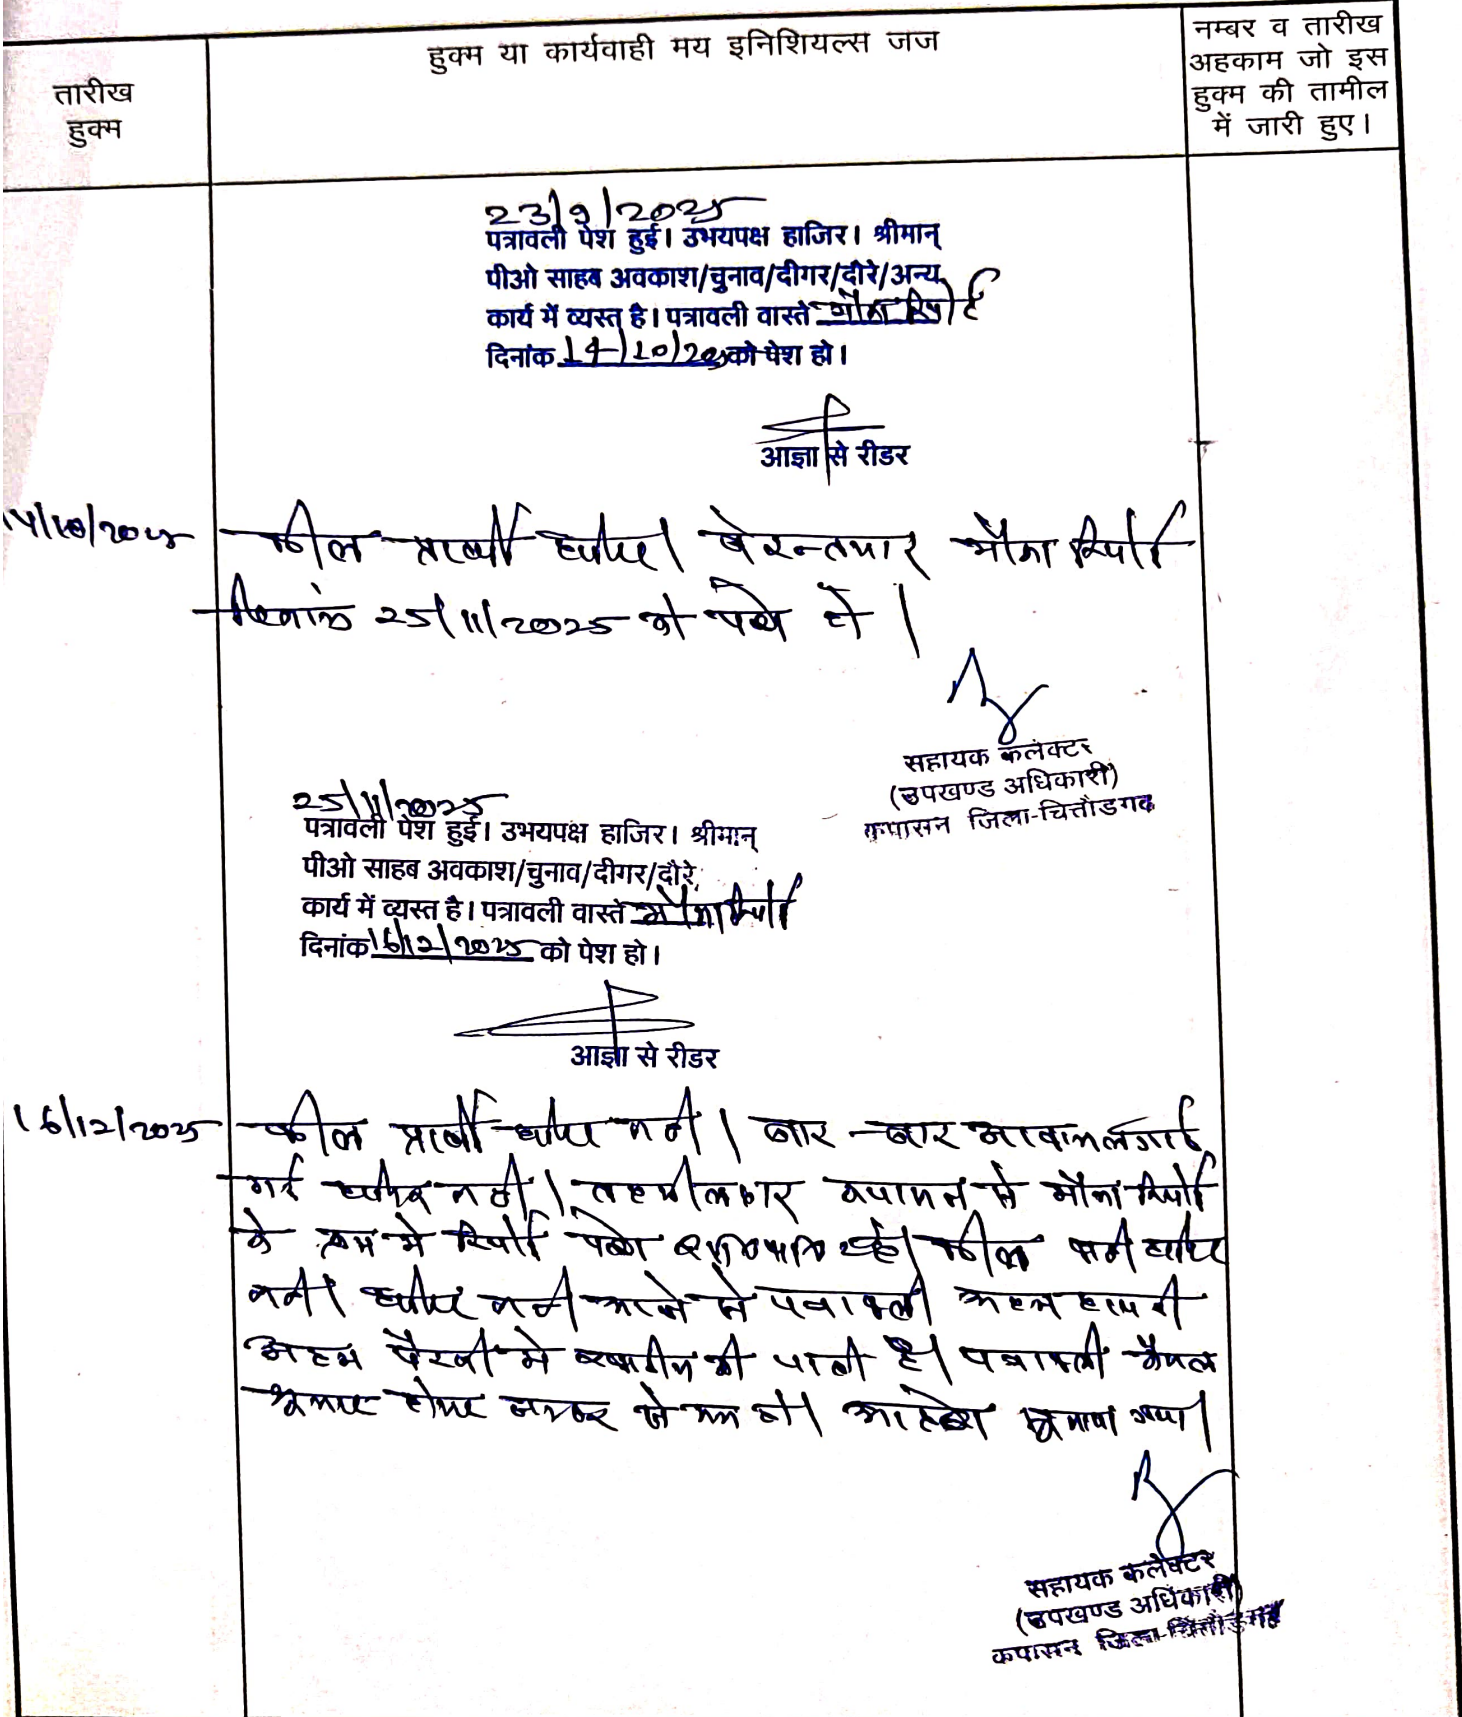 तारीख
हुक्म
हुक्म या कार्यवाही मय इनिशियल्स जज
नम्बर व तारीख
अहकाम जो इस
हुक्म की तामील
में जारी हुए।
23/9/2025
पत्रावली पेश हुई। उभयपक्ष हाजिर। श्रीमान्
पीओ साहब अवकाश/चुनाव/दीगर/दौरे/अन्य
कार्य में व्यस्त है। पत्रावली वास्ते मौका रिपोर्ट
दिनांक 14/10/25 को पेश हो।
आज्ञा से रीडर
14/10/2025 वकील प्रार्थी हाजिर। बेइन्तजार मौका रिपोर्ट
दिनांक 25/11/2025 को पेश हो।
सहायक कलेक्टर
(उपखण्ड अधिकारी)
कपासन जिला-चित्तौडगढ
25/11/2025
पत्रावली पेश हुई। उभयपक्ष हाजिर। श्रीमान्
पीओ साहब अवकाश/चुनाव/दीगर/दौरे
कार्य में व्यस्त है। पत्रावली वास्ते मौका रिपोर्ट
दिनांक 16/12/2025 को पेश हो।
आज्ञा से रीडर
16/12/2025 वकील प्रार्थी हाजिर नही। बार-बार आवाज लगाई
गई हाजिर नही। तहसीलदार कपासन से मौका रिपोर्ट
के क्रम मे रिपोर्ट पेश है। वकील हाजिर
नही। हाजिर नही आने से पत्रावली अदम हाजरी
अदम पैरवी मे खारीज की जाती है। पत्रावली फैसल
शुमार होकर नम्बर से कम हो। आदेश सुनाया गया।
सहायक कलेक्टर
(उपखण्ड अधिकारी)
कपासन जिला-चित्तौडगढ